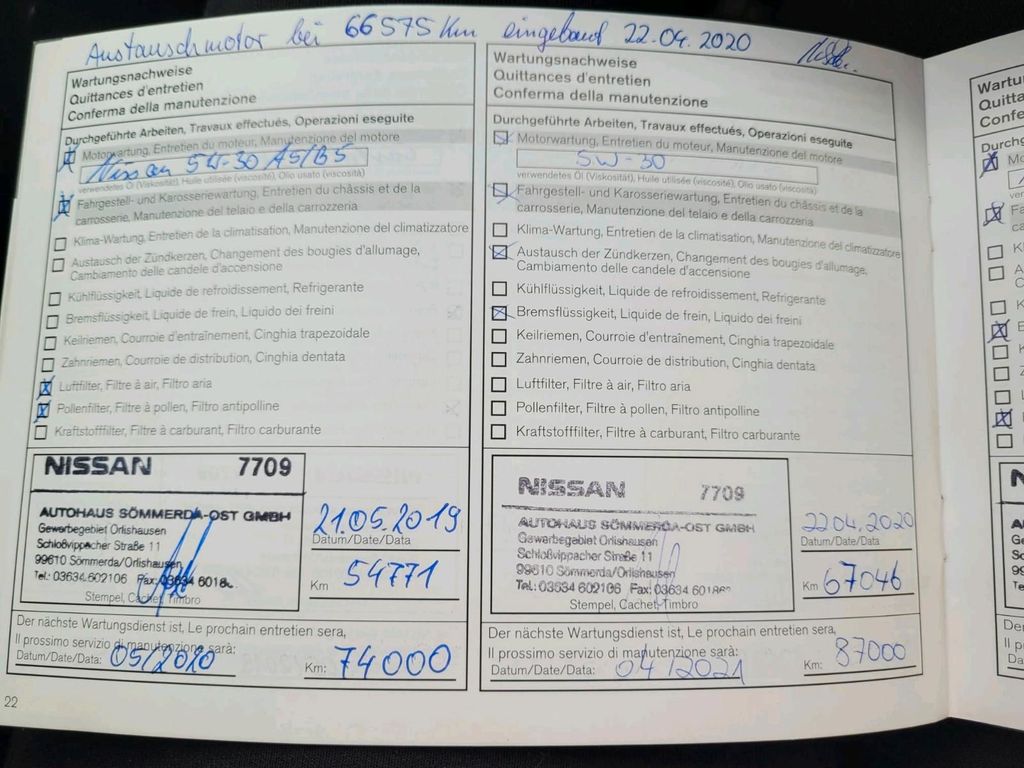 Austauschmotor bei 66575 Km eingebaut 22.04.2020
Wartungsnachweise
Quittances d'entretien
Conferma della manutenzione
Durchgeführte Arbeiten, Travaux effectués, Operazioni eseguite
Motorwartung, Entretien du moteur, Manutenzione del motore
Nissan 5W-30 A5/B5
verwendetes Öl (Viskosität), Huile utilisée (viscosité), Olio usato (viscosità)
Fahrgestell- und Karosseriewartung, Entretien du châssis et de la
carrosserie, Manutenzione del telaio e della carrozzeria
Klima-Wartung, Entretien de la climatisation, Manutenzione del climatizzatore
Austausch der Zündkerzen, Changement des bougies d'allumage,
Cambiamento delle candele d'accensione
Kühlflüssigkeit, Liquide de refroidissement, Refrigerante
Bremsflüssigkeit, Liquide de frein, Liquido dei freini
Keilriemen, Courroie d'entraînement, Cinghia trapezoidale
Zahnriemen, Courroie de distribution, Cinghia dentata
Luftfilter, Filtre à air, Filtro aria
Pollenfilter, Filtre à pollen, Filtro antipolline
Kraftstofffilter, Filtre à carburant, Filtro carburante
NISSAN 7709
AUTOHAUS SÖMMERDA-OST GMBH
Gewerbegebiet Orlishausen
Schloßvippacher Straße 11
99610 Sömmerda/Orlishausen
Tel.: 03634 602106 Fax: 03634 6018
Stempel, Cachet, Timbro
21.05.2019
Datum/Date/Data
Km 54771
Der nächste Wartungsdienst ist, Le prochain entretien sera,
Il prossimo servizio di manutenzione sarà:
Datum/Date/Data: 05/2020 Km: 74000
22
Wartungsnachweise
Quittances d'entretien
Conferma della manutenzione
Durchgeführte Arbeiten, Travaux effectués, Operazioni eseguite
Motorwartung, Entretien du moteur, Manutenzione del motore
5W-30
verwendetes Öl (Viskosität), Huile utilisée (viscosité), Olio usato (viscosità)
Fahrgestell- und Karosseriewartung, Entretien du châssis et de la
carrosserie, Manutenzione del telaio e della carrozzeria
Klima-Wartung, Entretien de la climatisation, Manutenzione del climatizzatore
Austausch der Zündkerzen, Changement des bougies d'allumage,
Cambiamento delle candele d'accensione
Kühlflüssigkeit, Liquide de refroidissement, Refrigerante
Bremsflüssigkeit, Liquide de frein, Liquido dei freini
Keilriemen, Courroie d'entraînement, Cinghia trapezoidale
Zahnriemen, Courroie de distribution, Cinghia dentata
Luftfilter, Filtre à air, Filtro aria
Pollenfilter, Filtre à pollen, Filtro antipolline
Kraftstofffilter, Filtre à carburant, Filtro carburante
NISSAN 7709
AUTOHAUS SÖMMERDA-OST GMBH
Gewerbegebiet Orlishausen
Schloßvippacher Straße 11
99610 Sömmerda/Orlishausen
Tel.: 03634 602106 Fax: 03634 601
Stempel, Cachet, Timbro
22.04.2020
Datum/Date/Data
Km 67046
Der nächste Wartungsdienst ist, Le prochain entretien sera,
Il prossimo servizio di manutenzione sarà:
Datum/Date/Data: 04/2021 Km: 87000